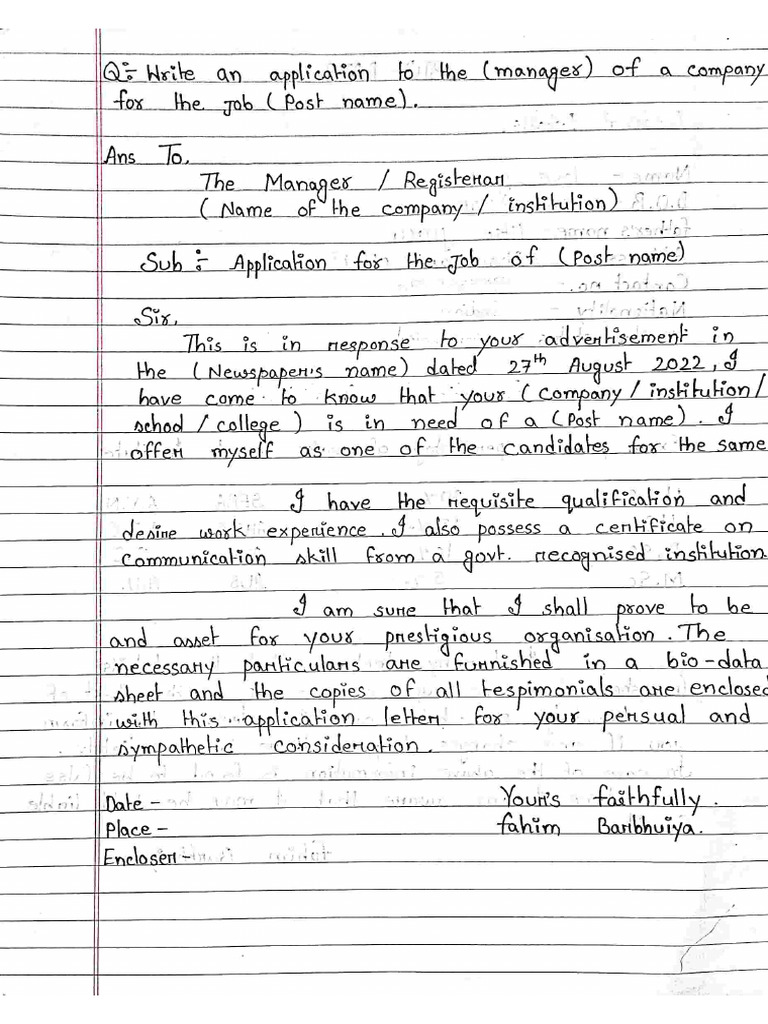 Q:- Write an application to the (manager) of a company
for the Job (Post name).
Ans To,
The Manager / Registerar
(Name of the company / institution)
Sub :- Application for the Job of (Post name)
Sir,
This is in response to your advertisement in
the (Newspaper's name) dated 27th August 2022, I
have come to know that your (company / institution /
school / college) is in need of a (Post name). I
offer myself as one of the candidates for the same
I have the requisite qualification and
desire work experience. I also possess a certificate on
communication skill from a govt. recognised institution
I am sure that I shall prove to be
and asset for your prestigious organisation. The
necessary particulars are furnished in a bio-data
sheet and the copies of all tespimonials are enclosed
with this application letter for your persual and
sympathetic consideration.
Date - Your's faithfully.
Place - fahim Barbhuiya.
Encloser -